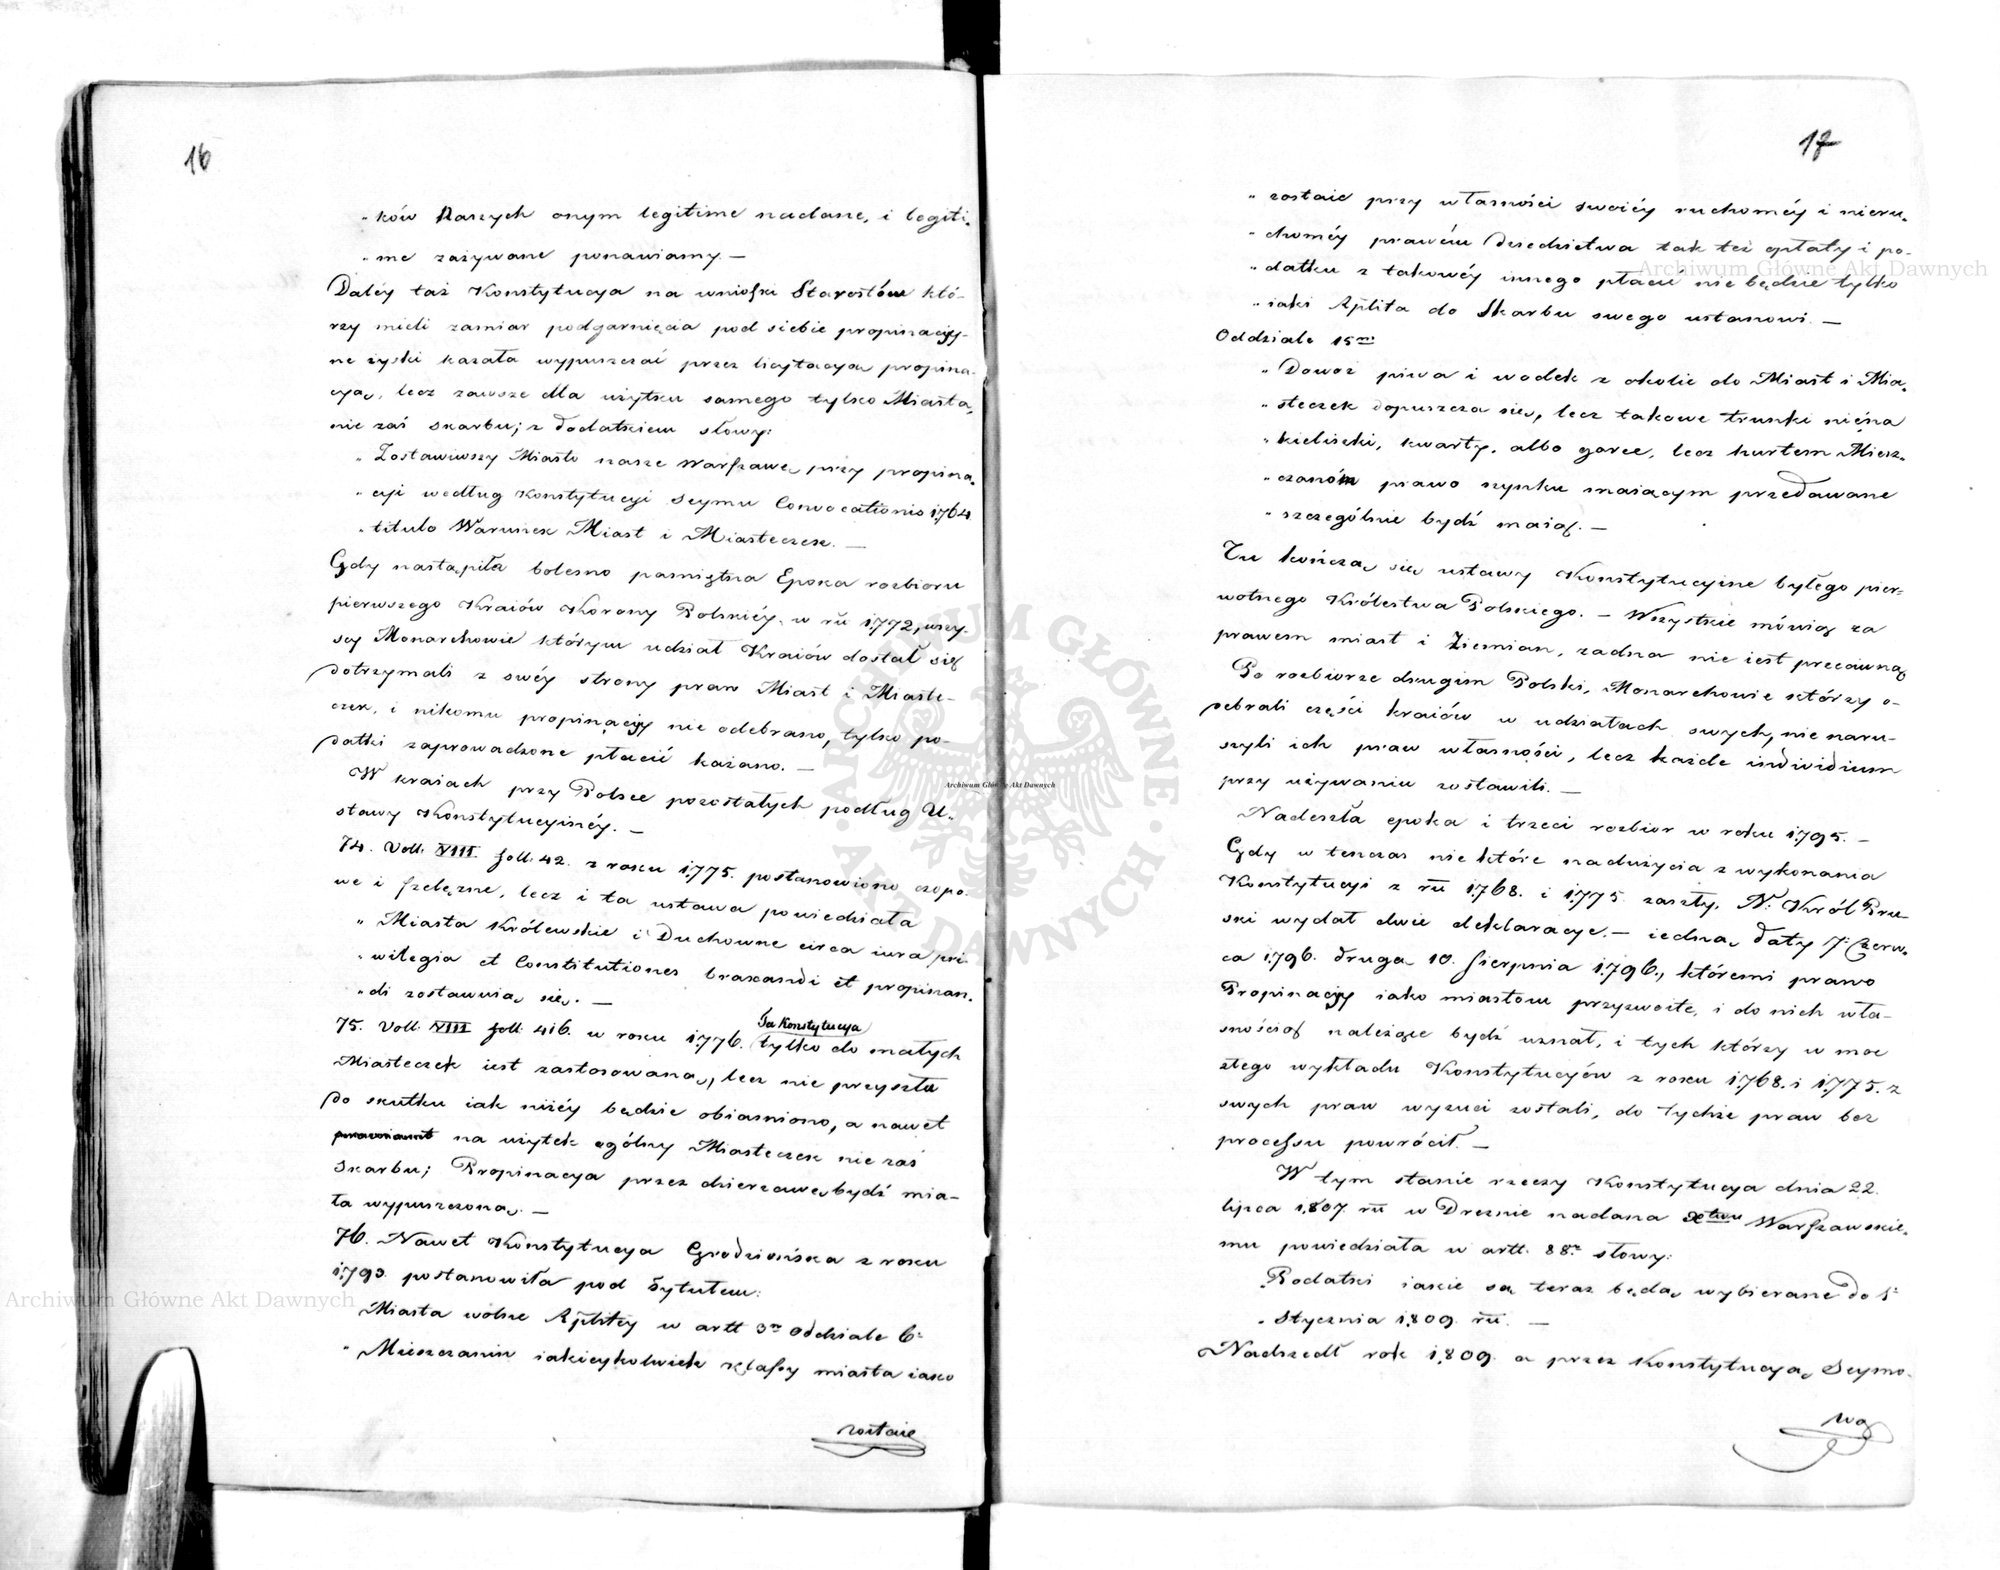 16
„ków Naszych onym legitime nadane, i legiti„
„me zażywane ponawiamy. —
Daléy taż Konstytucya na wnioski Starostów któ-
rzy mieli zamiar podgarnięcia pod siebie propinacyy-
ne zyski kazała wypuszczać przez licytacyą propina-
cyą, lecz zawsze dla użytku samego tylko Miasta,
nie zaś skarbu; z dodatkiem słowy:
„Zostawiwszy Miasto nasze Warszawę przy propina„
„cyi według Konstytucyi Seymu Convocationis 1764
„titulo Warunek Miast i Miasteczek. —
Gdy nastąpiła bolesno pamiętna Epoka rozbioru
pierwszego Kraiów Korony Polskiéy w rū 1772, wszy-
scy Monarchowie którym udział Kraiów dostał się
dotrzymali z swéy strony praw Miast i Miaste-
czek, i nikomu propinacyy nie odebrano, tylko po-
datki zaprowadzone płacić kazano. —
W kraiach przy Polsce pozostałych podług U„
stawy Konstytucyinéy. —
74. Voll. VIII. foll. 42. z roku 1775. postanowiono czopo-
we i szelężne, lecz i ta ustawa powiedziała
„Miasta Królewskie i Duchowne circa iura pri-
„wilegia et Constitutiones braxandi et propinan.
„di zostawuią się. —
75. Voll. VIII foll. 416. w roku 1776. Ta Konstytucya tylko do małych
Miasteczek iest zastosowaną, lecz nie przyszła
do skutku iak niżéy będzie obiasniono, a nawet
na użytek ogólny Miasteczek nie zaś
Skarbu; Propinacya przez dzierzawę bydź mia-
ła wypuszczoną. —
76. Nawet Konstytucya Grodzieńska z roku
1793. postanowiła pod Tytułem:
Miasta wolne Rplitéy w artt 3m oddziale 6:
„Mieszczanin iakieykolwiek klassy miasta iako
zostaie
17
„zostaie przy własności swoiéy ruchoméy i nieru„
„choméy prawém Dziedzictwa tak też opłaty i po-
„datku z takowéy innego płacić nie będzie tylko
„iaki Rplita do Skarbu swego ustanowi. —
Oddziale 15m
„Dowoz piwa i wodek z okolic do Miast i Mia„
„steczek dopuszcza się, lecz takowe trunki nie na
„kieliszki, kwarty, albo garce, lecz hurtem Miesz„
„czanóm prawo szynku maiącym przedawane
„szczególnie bydź maią. —
Tu kończą się ustawy Konstytucyine byłego pier-
wotnego Królestwa Polskiego. — Wszystkie mówią za
prawem miast i Ziemian, żadna nie iest przeciwną
Po rozbiorze drugim Polski, Monarchowie którzy o-
debrali części kraiów w udziałach swych, nie naru-
szyli ich praw własności, lecz każde individium
przy używaniu zostawili. —
Nadeszła epoka i trzeci rozbior w roku 1795. —
Gdy w tenczas nie które nadużycia z wykonania
Konstytucyi z rū 1768. i 1775 zaszły, N: Król Pru-
ski wydał dwie deklaracye. — iedną daty 7: Czerw„
ca 1796. drugą 10. Sierpnia 1796., któremi prawo
Propinacyy iako miastom przyzwoite, i do nich wła-
snością należące bydź uznał, i tych którzy w moc
złego wykładu Konstytucyów z roku 1768. i 1775. z
swych praw wyzuci zostali, do tychże praw bez
processu powrócił. —
W tym stanie rzeczy Konstytucya dnia 22.
lipca 1807 rū w Dreznie nadana Xtwu Warszawskie„
mu powiedziała w artt. 88m słowy:
„Podatki iakie są teraz będą wybierane do 1:
„Stycznia 1809. rū. —
Nadszedł rok 1809. a przez Konstytucyą Seymo-
wą
Archiwum Główne Akt Dawnych
Archiwum Główne Akt Dawnych
Archiwum Główne Akt Dawnych
ARCHIWUM GŁÓWNE · AKT DAWNYCH ·